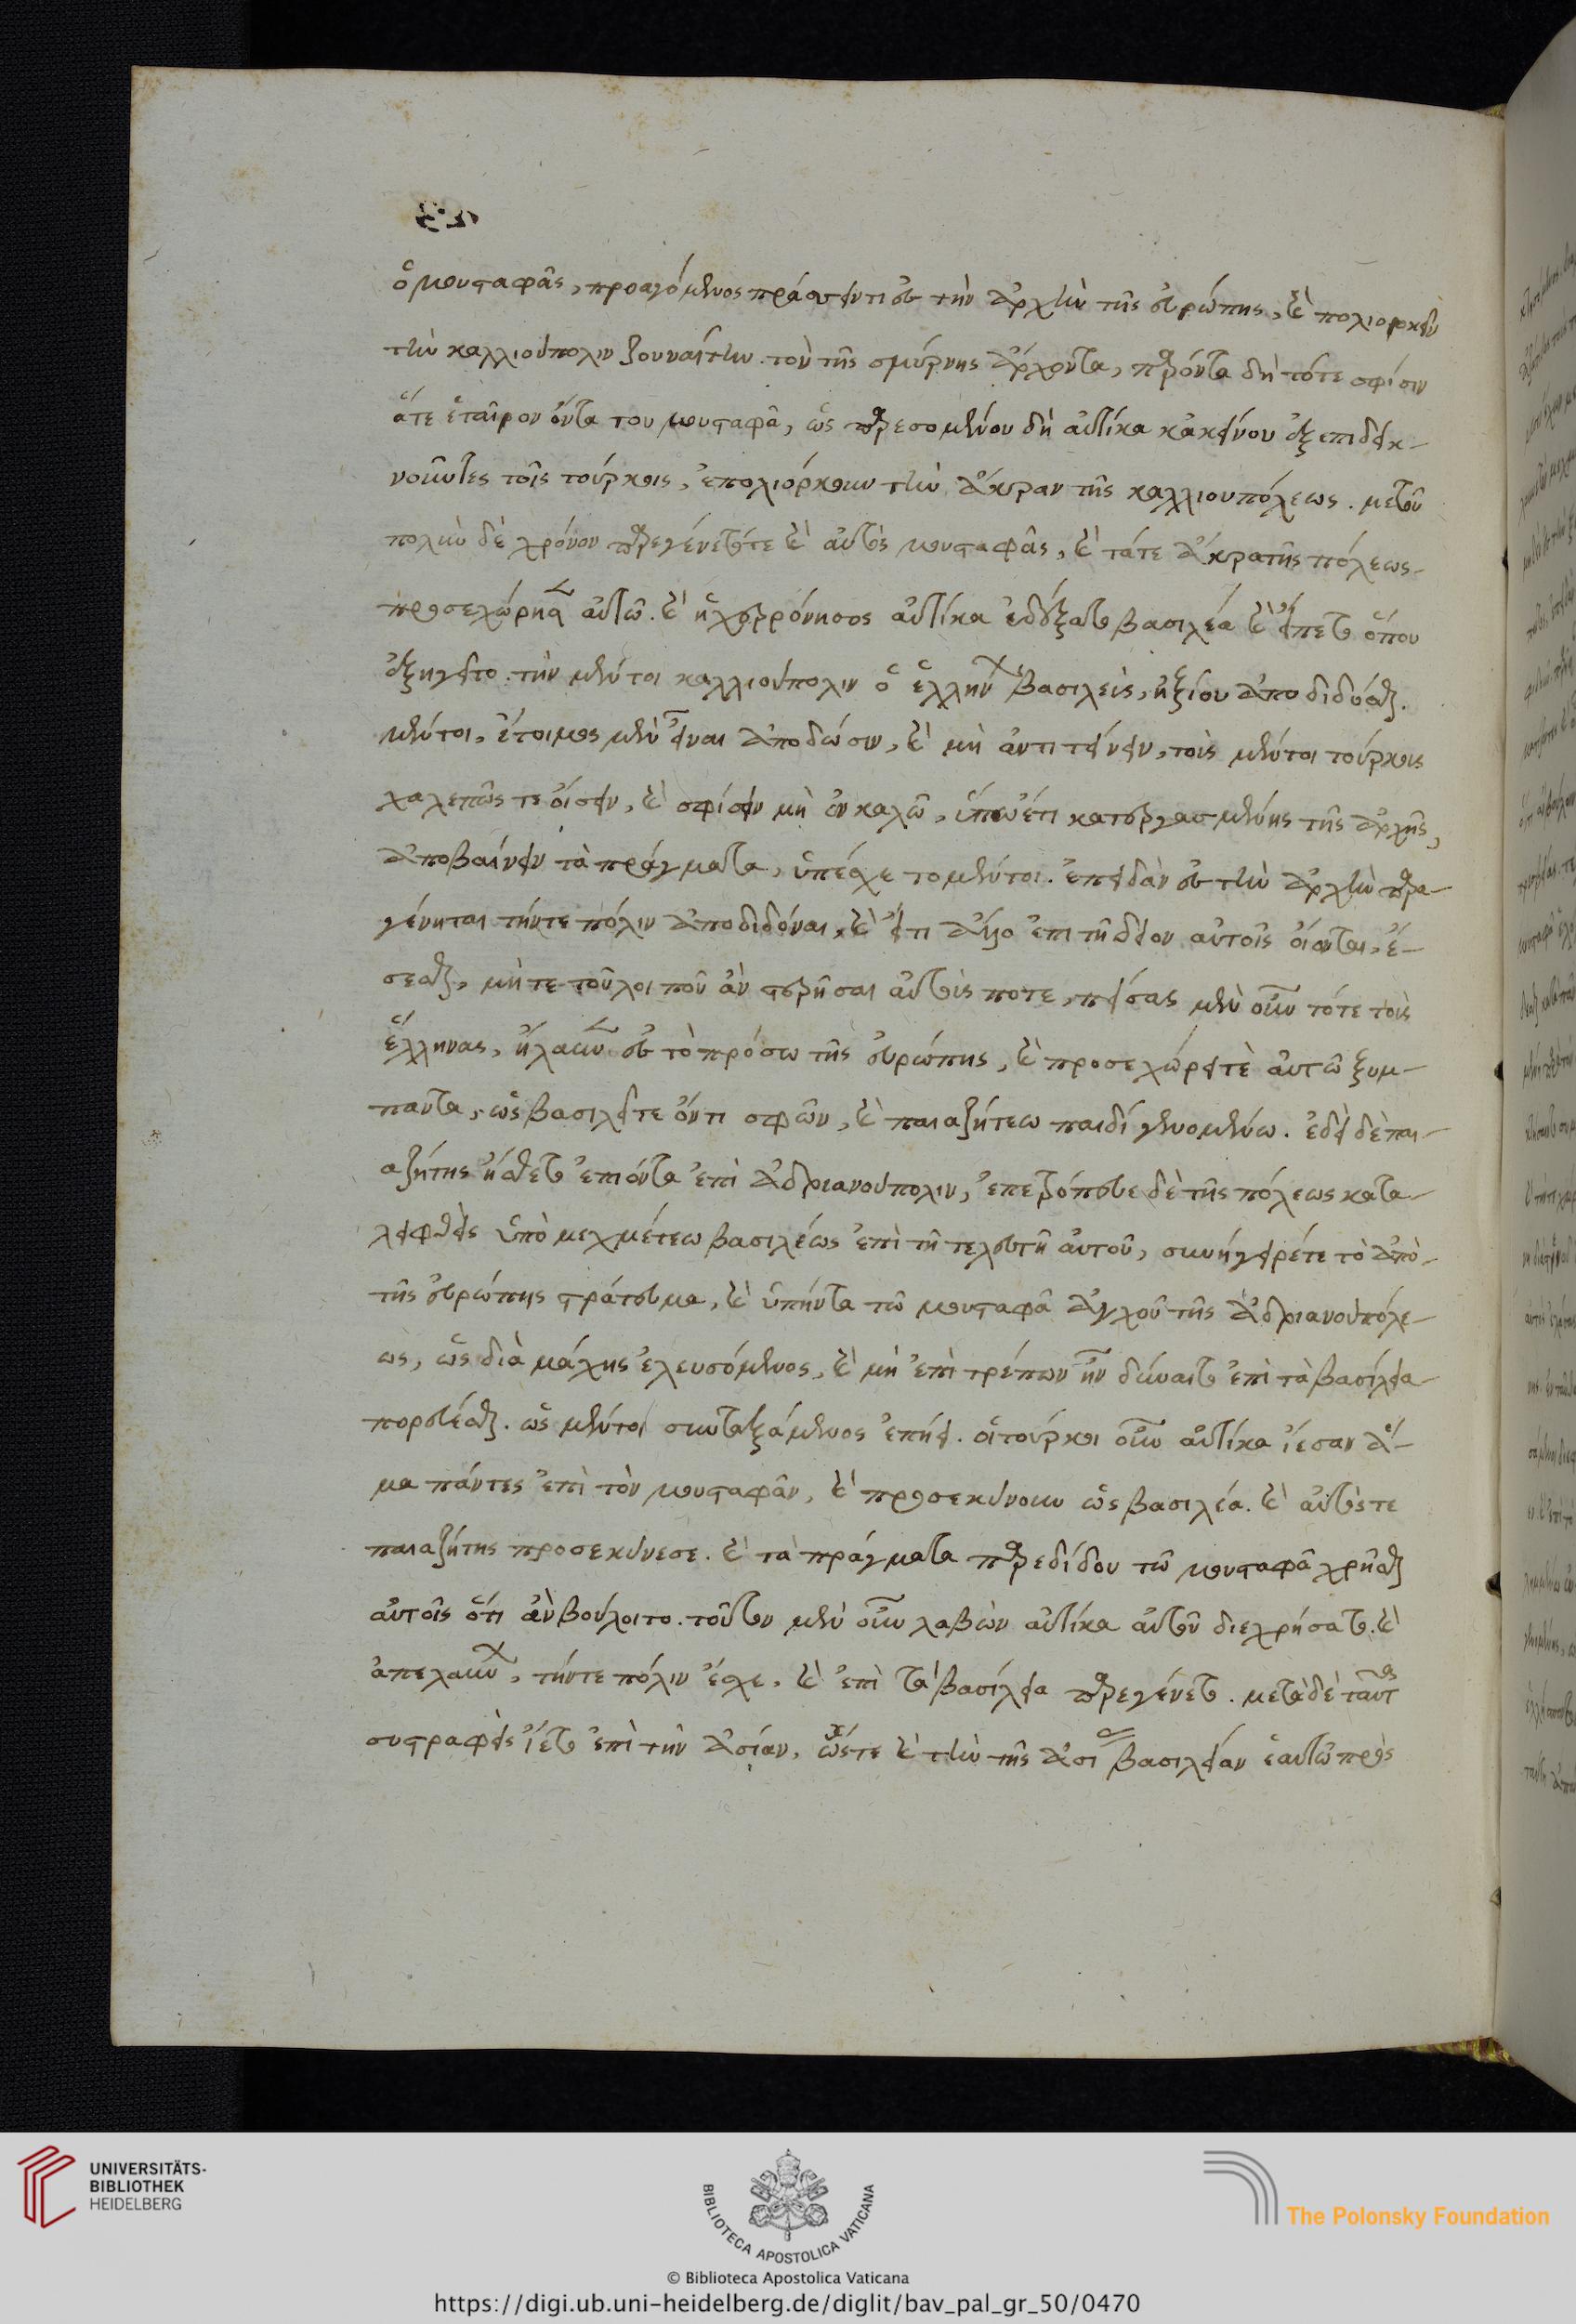 ὁ μουσταφᾶς, προαγόμενος παράσχειν τι ἐς τὴν ἀρχὴν τῆς εὐρώπης, καὶ πολιορκεῖν
τὴν καλλιούπολιν ζουναΐτην. τὸν τῆς σμύρνης ἄρχοντα, παρόντα δὴ τότε σφίσιν
ἅτε ἑταῖρον ὄντα του μουσταφᾶ, ὡς παρεσομένου δὴ αὐτίκα κἀκείνου ἐξεπιδεικ-
νοῦντες τοῖς τούρκοις, ἐπολιόρκουν τὴν ἄκραν τῆς καλλιουπόλεως. μετ οὐ
πολὺν δὲ χρόνον παρεγένετό τε καὶ αὐτὸς μουσταφᾶς, καὶ τά τε ἄκρα τῆς πόλεως
προσεχώρησαν αὐτῶ. καὶ ἡ χερρόνησος αὐτίκα ἐδέξατο βασιλέα καὶ εἵπετο ὅπου
ἐξηγεῖτο. τὴν μέντοι καλλιούπολιν ὁ ἑλλήνων βασιλεὺς, ἠξίου ἀποδιδόσθαι.
μέντοι, ἕτοιμος μὲν εἶναι ἀποδώσιν, καὶ μὴ ἀντιτείνειν, τοὺς μέντοι τούρκους
χαλεπῶς τε οἴσειν, καὶ σφίσιν μὴ ἐν καλῶ, ὑπω ἔτι κατεργασμένης τῆς ἀρχῆς,
ἀποβαίνειν τὰ πράγματα, ὑπέσχετο μέντοι. ἐπειδὰν ἐς τὴν ἀρχὴν παρα-
γένηται τήν τε πόλιν ἀποδιδόναι, καὶ εἴ τι ἄλλο ἐπιτήδειον αὐτοῖς οἴονται, ἔ-
σεσθαι, μήτε τοῦλοιποῦ ἂν στερῆσαι αὐτοὺς ποτε, πείσας μὲν οὖν τότε τοὺς
ἕλληνας, ἤλαυνεν ἐς τὸ πρόσω τῆς εὐρώπης, καὶ προσεχώρει τὲ αὐτῶ ξυμ-
παντα, ὡς βασιλεῖ τε ὄντι σφῶν, καὶ παιαζήτεω παιδὶ γενομένω. ἐδὲι δὲ παι-
αζήτης ἤσθετο ἐπιόντα ἐπὶ ἀδριανούπολιν, ἐπετρόπευε δὲ τῆς πόλεως κατα-
λειφθεὶς ὑπὸ μεχμέτεω βασιλέως ἐπὶ τῆ τελευτῆ αὐτοῦ, συνήγειρέ τε τὸ ἀπὸ
τῆς εὐρώπης στράτευμα, καὶ ὑπήντα τῶ μουσταφᾶ ἀγχοῦ τῆς ἀδριανουπόλε-
ως, ὡς διὰ μάχης ἐλευσόμενος, καὶ μὴ ἐπιτρέπων ἢν δύναιτο ἐπὶ τὰ βασίλεια
πορεύεσθαι. ὡς μέντοι συνταξάμενος ἐπήει. οἱ τούρκοι οὖν αὐτίκα ἵεσαν ἅ-
μα πάντες ἐπὶ τὸν μουσταφᾶν, καὶ προσεκύνουν ὡς βασιλέα. καὶ αὐτός τε
παιαζήτης προσεκύνεσε. καὶ τὰ πράγματα παρεδίδου τῶ μουσταφᾶ χρῆσθαι
αὐτοῖς ὅτι ἂν βούλοιτο. τοῦτον μὲν οὖν λαβὼν αὐτίκα αὐτοῦ διεχρήσατο. καὶ
ἀπελαύνων, τήν τε πόλιν ἔσχε, καὶ ἐπὶ τὰ βασίλεια παρεγένετο. μετὰ δὲ ταῦτα
συστραφεὶς ἵετο ἐπὶ τὴν ἀσίαν, ὥστε καὶ τὴν τῆς ἀσίας βασιλείαν ἑαυτῶ προς
UNIVERSITÄTS-
BIBLIOTHEK
HEIDELBERG
BIBLIOTECA APOSTOLICA VATICANA
The Polonsky Foundation
© Biblioteca Apostolica Vaticana
https://digi.ub.uni-heidelberg.de/diglit/bav_pal_gr_50/0470